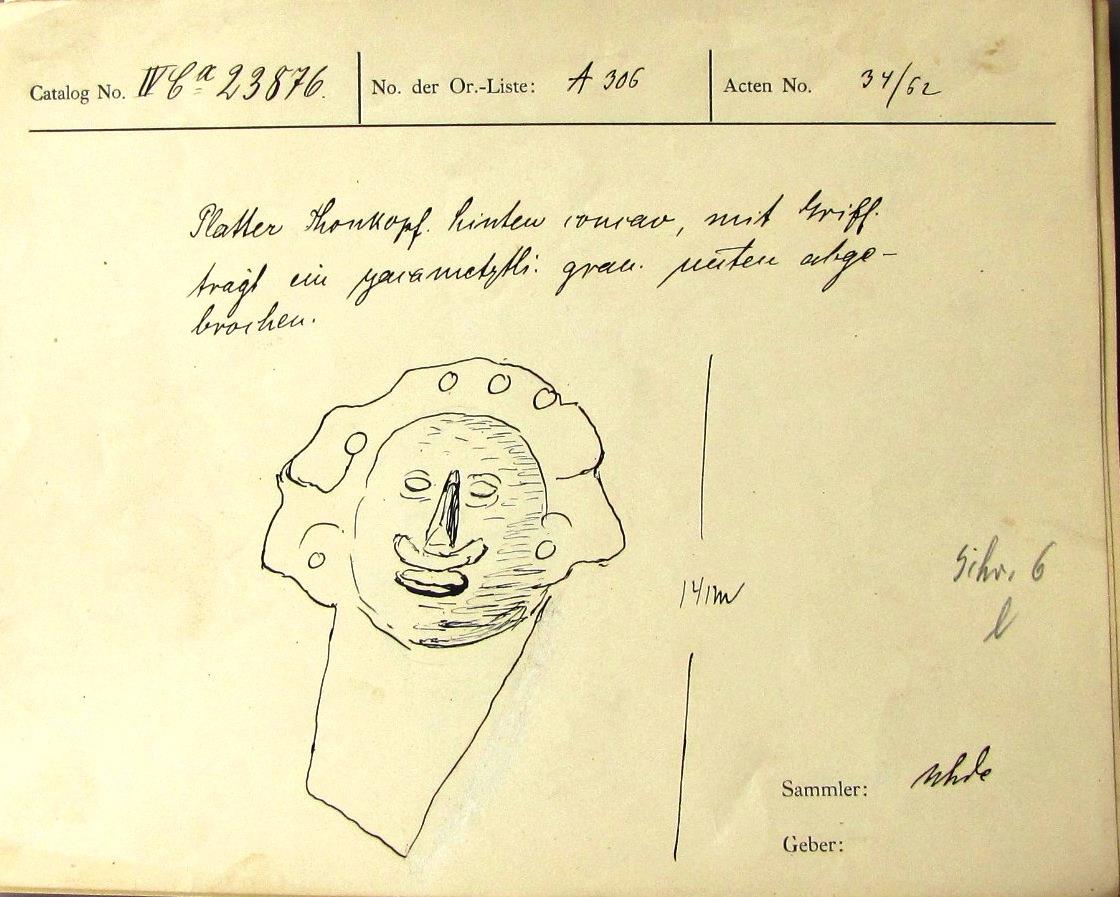 Catalog No. IV Ca 23876. No. der Or.-Liste: A 306 Acten No. 34/62
Platter Thonkopf. hinten concav, mit Griff.
trägt ein yacametztli. grau. unten abge-
brochen.
14cm
Schr. 6
l
Sammler: Uhde
Geber: